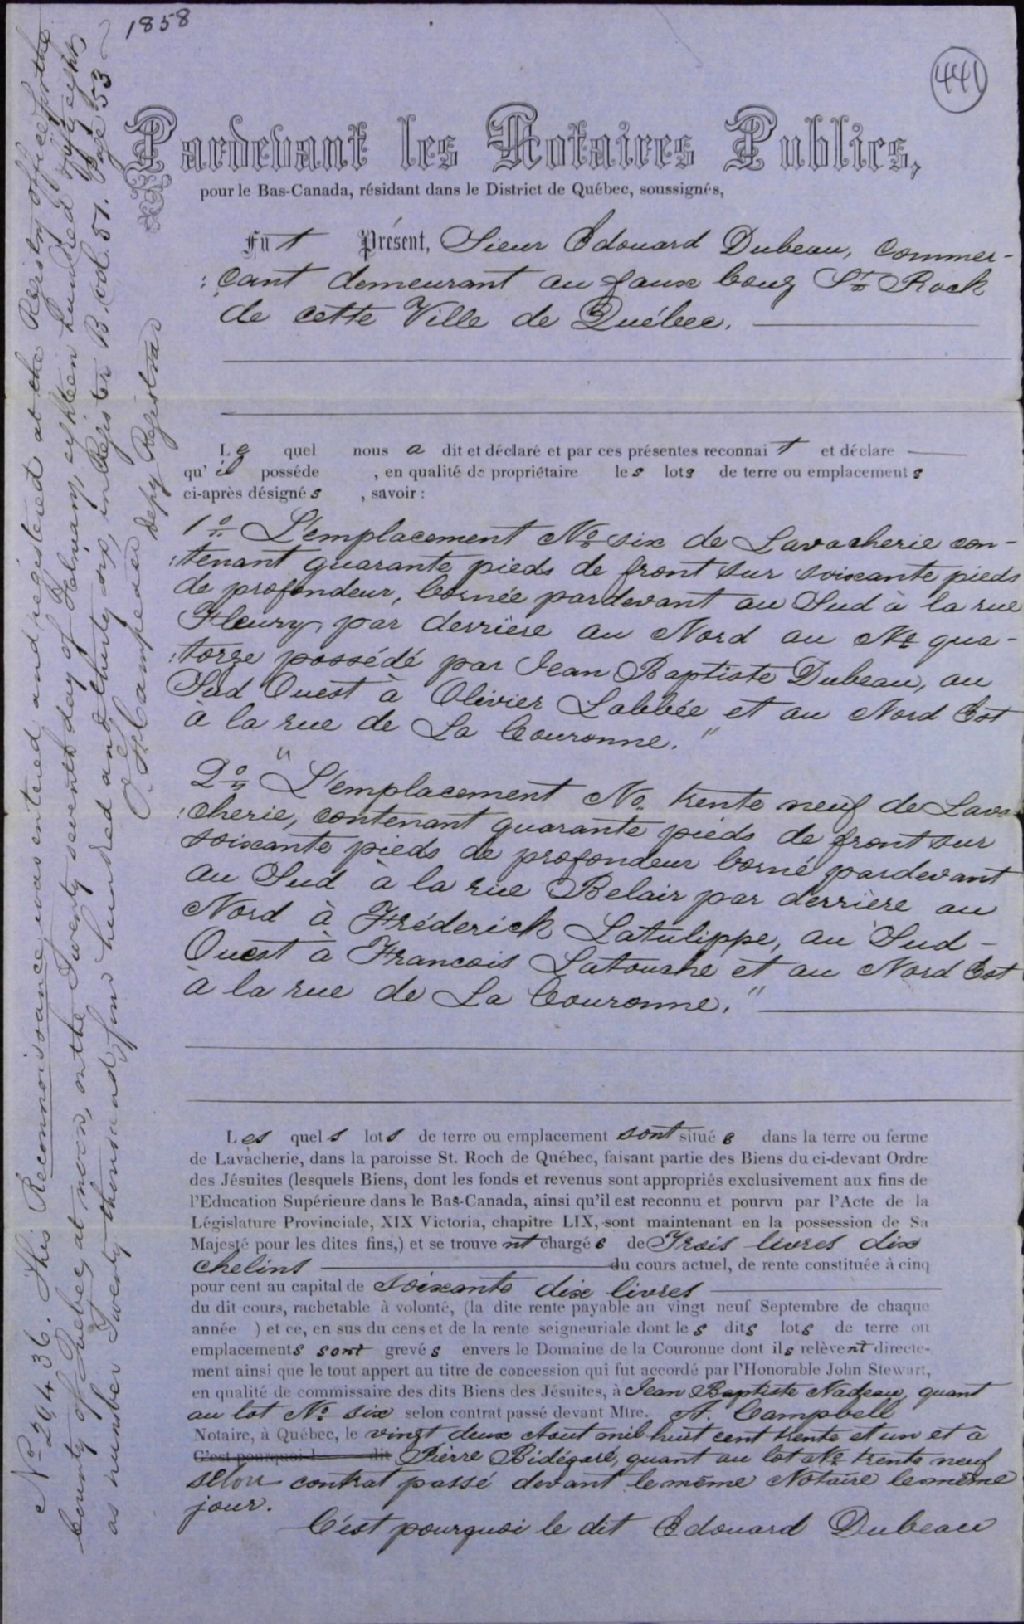 1858
441
Pardevant les Notaires Publics,
pour le Bas-Canada, résidant dans le District de Québec, soussignés,
Fut Présent, Sieur Edouard Dubeau, commer-
:çant demeurant au faux bourg St. Rock
de cette Ville de Québec.
Le quel nous a dit et déclaré et par ces présentes reconnait et déclare
qu' il posséde , en qualité de propriétaire les lots de terre ou emplacements
ci-après désignés , savoir :
1o "L'emplacement No. six de Lavacherie con-
:tenant quarante pieds de front sur soixante pieds
de profondeur, bornée pardevant au Sud à la rue
Fleury, par derrière au Nord au No. qua-
:torze possédé par Jean Baptiste Dubeau, au
Sud Ouest à Olivier Labbée et au Nord Est
à la rue de La Couronne."
2o "L'emplacement No. trente neuf de Lava-
:cherie, contenant quarante pieds de front sur
soixante pieds de profondeur borné pardevant
au Sud à la rue Belair par derrière au
Nord à Fréderick Latulippe, au Sud-
Ouest à Francois Latouche et au Nord Est
à la rue de La Couronne."
Les quels lots de terre ou emplacement sont situées dans la terre ou ferme
de Lavacherie, dans la paroisse St. Roch de Québec, faisant partie des Biens du ci-devant Ordre
des Jésuites (lesquels Biens, dont les fonds et revenus sont appropriés exclusivement aux fins de
l'Education Supérieure dans le Bas-Canada, ainsi qu'il est reconnu et pourvu par l'Acte de la
Législature Provinciale, XIX Victoria, chapitre LIX, sont maintenant en la possession de Sa
Majesté pour les dites fins,) et se trouvent chargés de Trois livres dix
chelins du cours actuel, de rente constituée à cinq
pour cent au capital de soixante dix livres
du dit cours, rachetable à volonté, (la dite rente payable au vingt neuf Septembre de chaque
année ) et ce, en sus du cens et de la rente seigneuriale dont les dits lots de terre ou
emplacements sont grevés envers le Domaine de la Couronne dont ils relèvent directe-
ment ainsi que le tout appert au titre de concession qui fut accordé par l'Honorable John Stewart,
en qualité de commissaire des dits Biens des Jésuites, à Jean Baptiste Nadeau, quant
au lot No. six selon contrat passé devant Mtre. A. Campbell
Notaire, à Québec, le vingt deux Aout mil huit cent trente et un et à
C'est pourquoi l dit Pierre Bidégaré, quant au lot No. trente neuf
selon contrat passé devant le même Notaire le même
jour.
C'est pourquoi le dit Edouard Dubeau
No 29436. This Reconnoissance was entered and registered at the Registry office for the
County of Quebec, at noon, on the Twenty seventh day of February, eighteen hundred fifty eight
as number Twenty thousand four hundred and thirty six, in Register B. vol. 51. Page 53
Depy Registrar